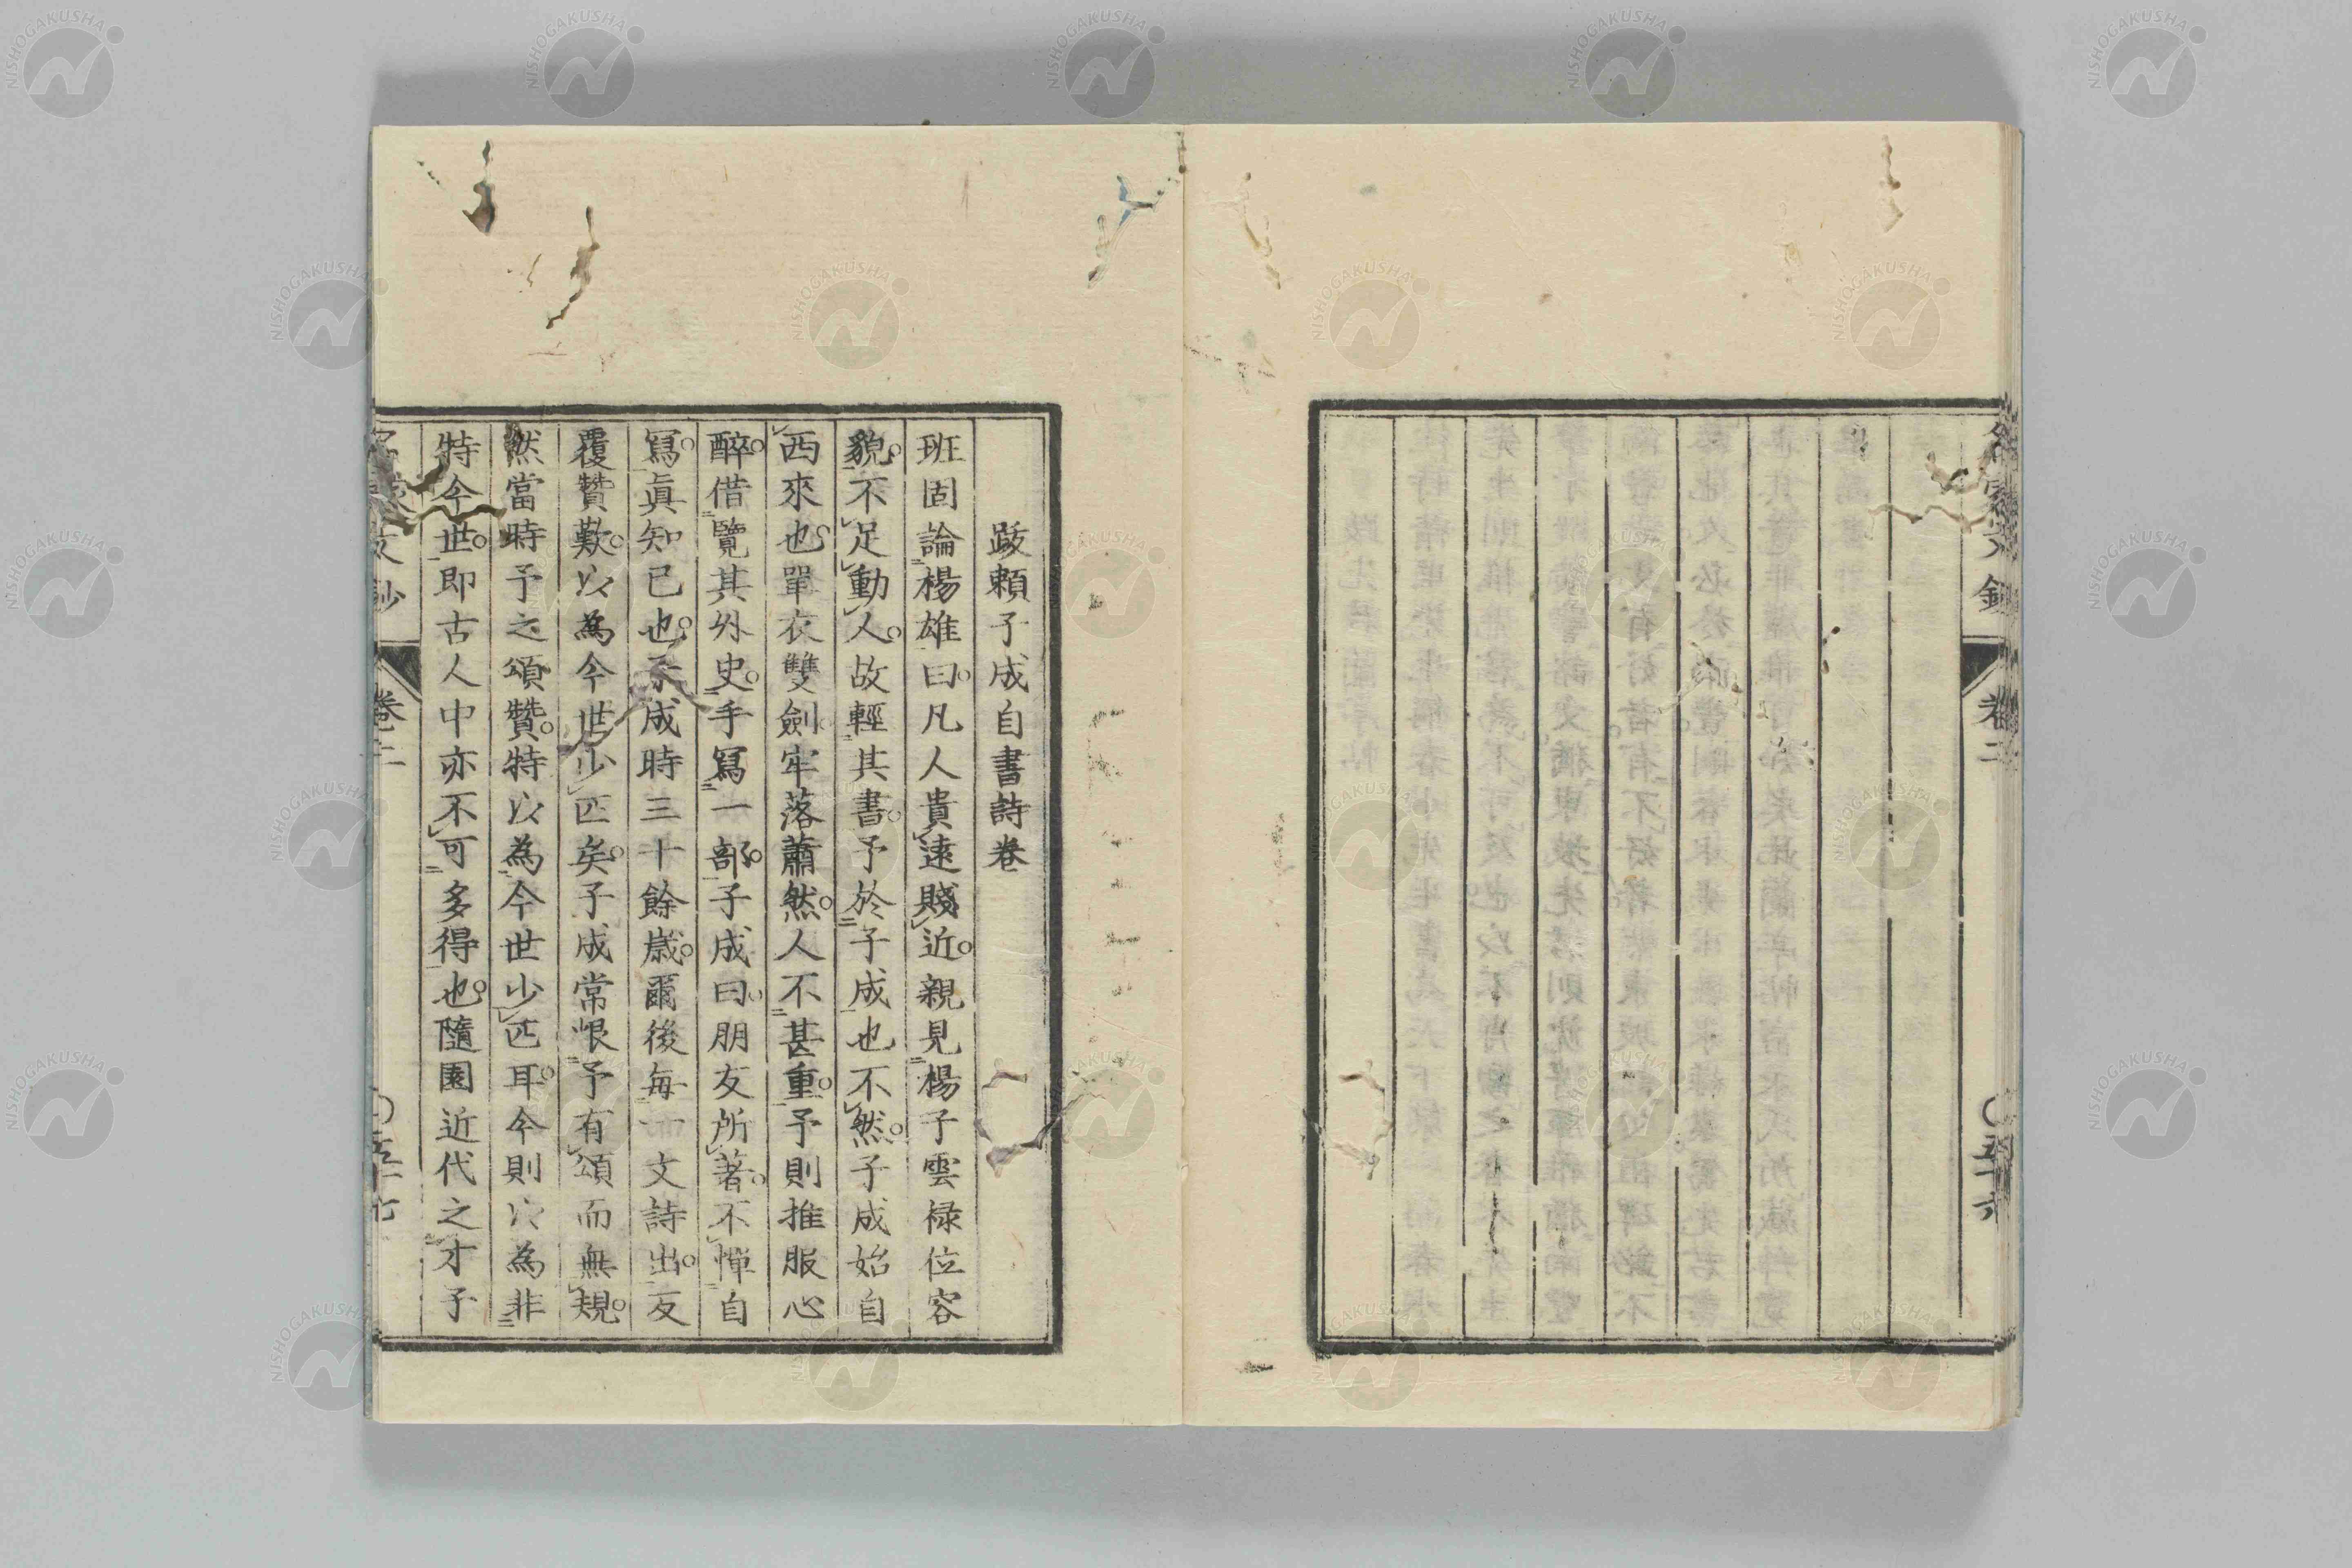 卷二
〇五十六
跋賴子成自書詩卷
班固論楊雄曰。凡人貴遠賤近。親見楊子雲祿位容
貌。不足動人。故輕其書。予於子成也不然。子成始自
西來也。單衣雙劍。牢落蕭然。人不甚重。予則推服心
醉。借覽其外史。手寫一部。子成曰。朋友所著。不憚自
寫。眞知己也。子成時三十餘歲。爾後每一文詩出。友
覆贊歎。以為今世少匹矣。子成常恨予有頌而無規。
然當時予之頌贊。特以為今世少匹耳。今則以為非
特今世。即古人中亦不可多得也。隨園近代之才子